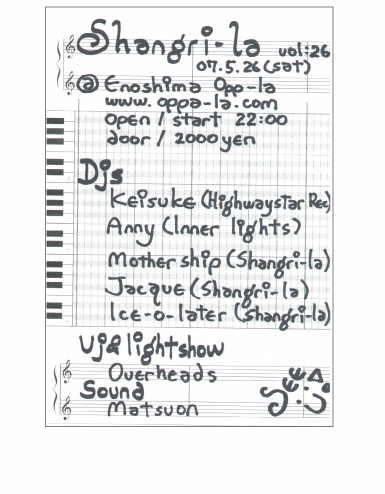 Shangri-la vol:26
07.5.26 (sat)
@ Enoshima Opp-la
www.oppa-la.com
open / start 22:00
door / 2000yen
Djs
Keisuke (Highwaystar Rec)
Anny (Inner lights)
Mother ship (Shangri-la)
Jacque (Shangri-la)
Ice-o-later (Shangri-la)
Vj& lightshow
Overheads
Sound
Matsuon
SEE U